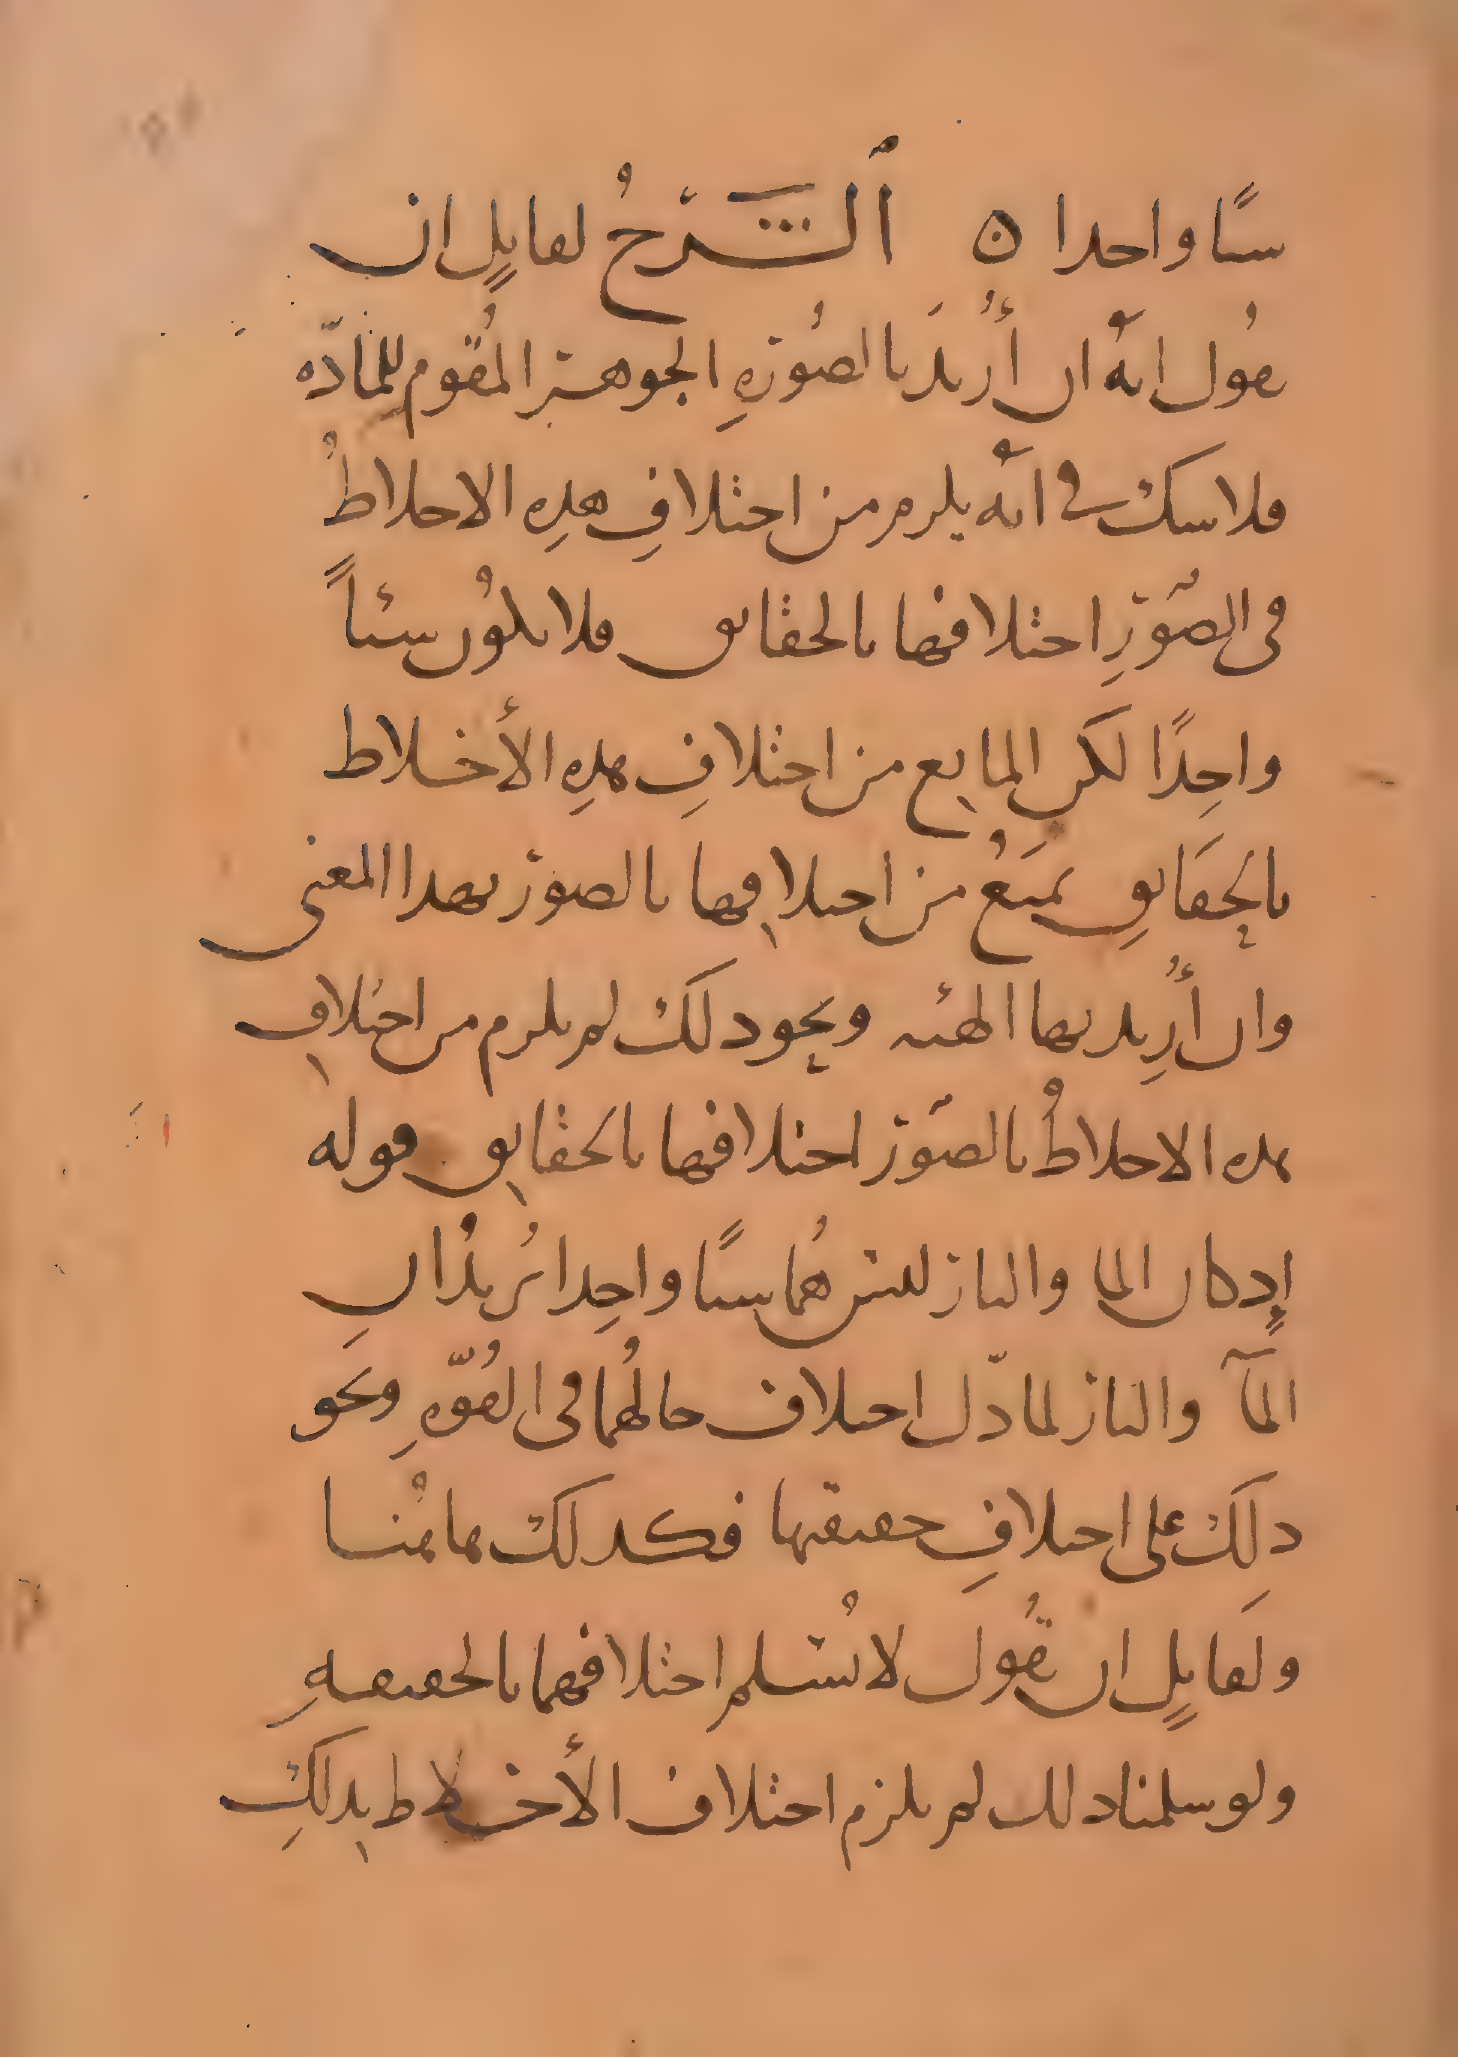 شيًا واحدا ٥ اَلشَّرْحُ لقايلٍ ان
يقُول انهُ ان أُريدَ بالصُورَةِ الجوهر المُقوم للمادّه
فلا شك في انهُ يلزم من اختلافِ هذِهِ الاخلاطُ
في الصّوَرِ اختلافها بالحقايق فلا يكوُن شئاً
واحِدًا لكن المانِع من اختلافِ هذِهِ الأخلاط
بالحقَايِق يمنَعُ من اختلافِها بالصور بهذا المعنى
وان أُرِيد بها الهئه ونحو ذلك لم يلزم من اختلافِ
هذه الاخلاطُ بالصّور اختلافها بالحقايِق قوله
إِذ كان الما والنار ليس هُما شيًا واحِدا يُريدُ ان
المآ والنار لما دّل اختلاف حالهُما في القُوّهِ ونحو
ذلِكَ على اختلافِ حقيقتها فكذلك هاهُنا
ولقايلٍ ان يقُولَ لا نُسَلم اختلافهما بالحقيقهِ
ولو سلمنا ذلك لم يلزم اختلاف الأخلاط بِذلكِ